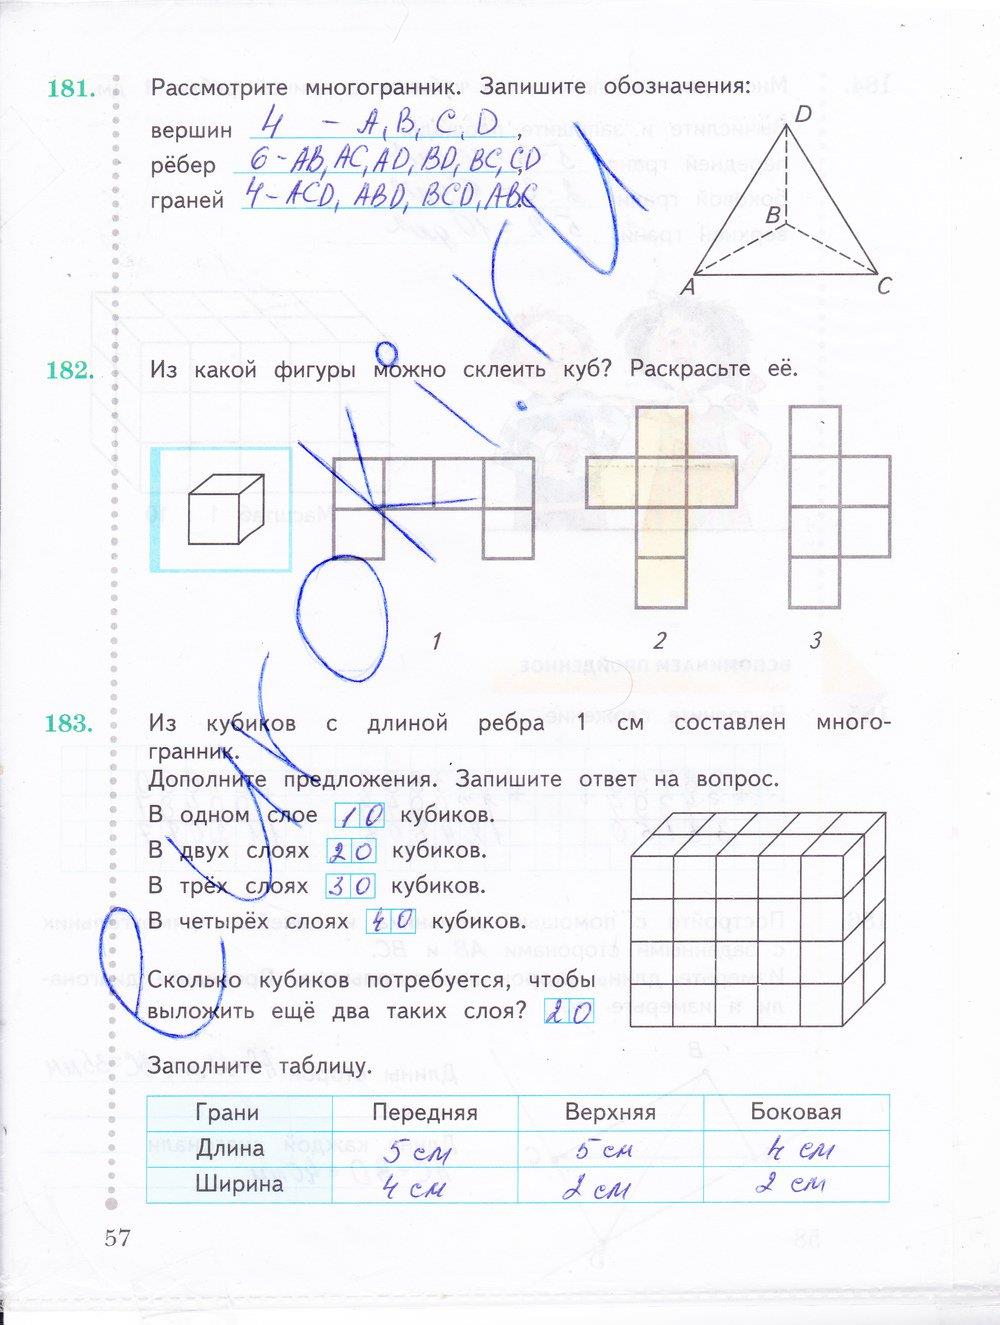 181. Рассмотрите многогранник. Запишите обозначения:
вершин 4 – A, B, C, D,
рёбер 6 – AB, AC, AD, BD, BC, CD
граней 4 – ACD, ABD, BCD, ABC
D
B
A
C
182. Из какой фигуры можно склеить куб? Раскрасьте её.
1
2
3
183. Из кубиков с длиной ребра 1 см составлен много-
гранник.
Дополните предложения. Запишите ответ на вопрос.
В одном слое 10 кубиков.
В двух слоях 20 кубиков.
В трёх слоях 30 кубиков.
В четырёх слоях 40 кубиков.
Сколько кубиков потребуется, чтобы
выложить ещё два таких слоя? 20
Заполните таблицу.
Грани Передняя Верхняя Боковая
Длина 5 см 5 см 4 см
Ширина 4 см 2 см 2 см
57